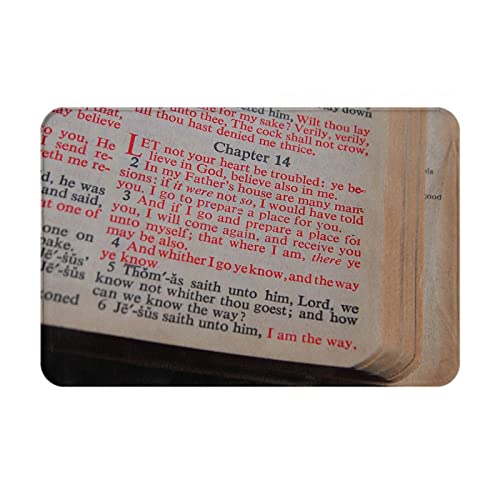 ered him, Wilt thou lay
thy life for my sake? Verily, verily,
till thou hast denied me thrice. The cock shall not crow,
Chapter 14
LET not your heart be troubled: ye be-
lieve in God, believe also in me.
2 In my Father's house are many man-
sions: if it were not so, I would have told
you. I go to prepare a place for you.
3 And if I go and prepare a place for
you, I will come again, and receive you
unto myself; that where I am, there ye
may be also.
4 And whither I go ye know, and the way
ye know.
5 Thŏm′-ăs saith unto him, Lord, we
know not whither thou goest; and how
can we know the way?
6 Jē′-ṡŭs saith unto him, I am the way,
that,
ay believe
to you, He
I send re-
eth me re-
d, he was
and said,
at one of
one on
pake.
Jē′-ṡŭs'
Jē′-ṡŭs
koned
ood